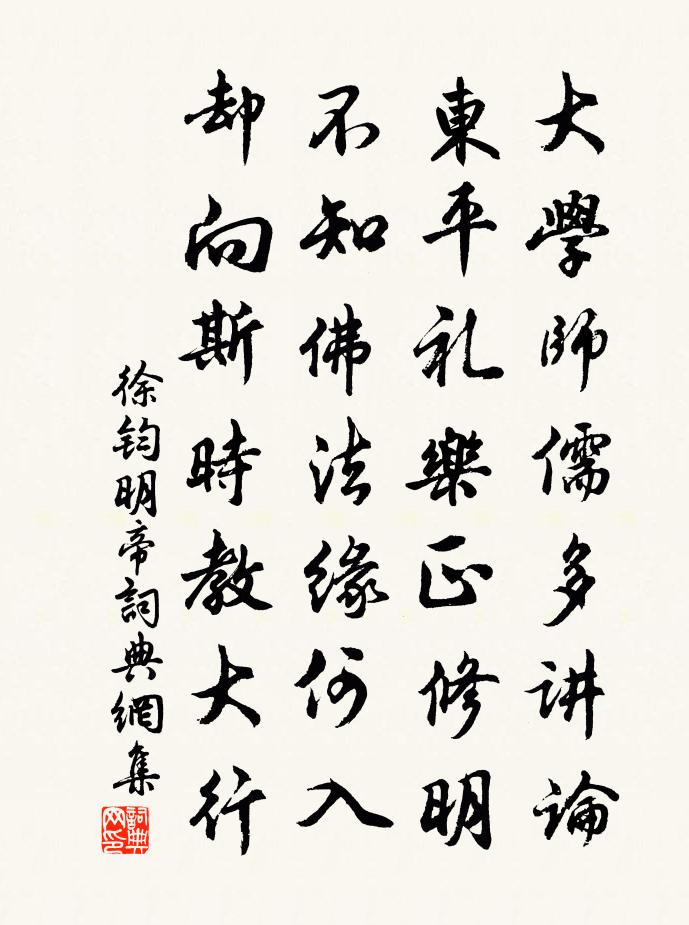 大學師儒多讲論
東平礼樂正修明
不知佛法緣何入
却向斯時教大行
徐钧明帝詞典網集
詞典网印